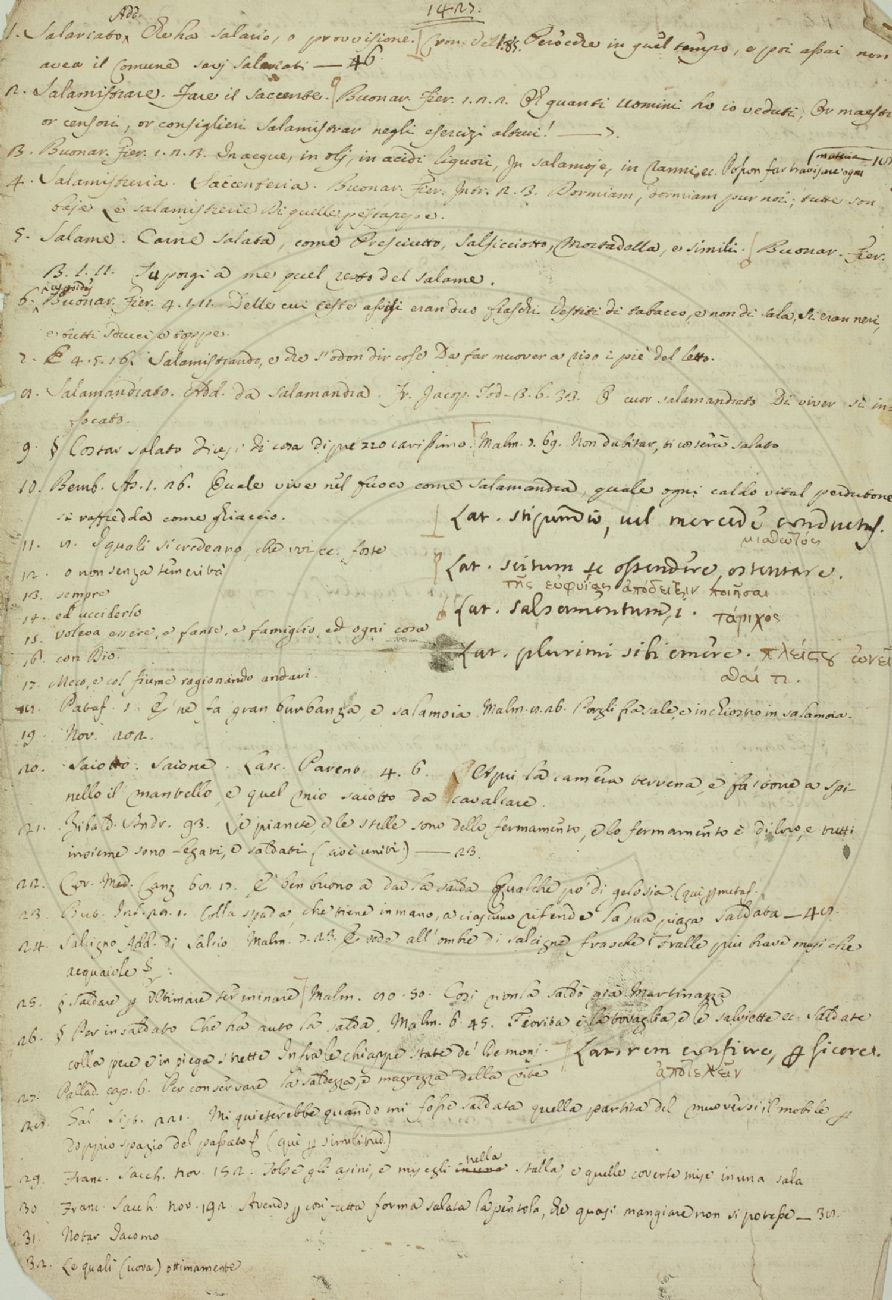 1427.
1. Salariato, Add. Che ha salario, o provvisione. Perocche in quel tempo, e poi assai non
avea il Comune savj salariati — 46
2. Salamistrare. Fare il saccente. Buonar. Fier. 1. 2. 2. Oh quanti uomini ho io veduti, Or maestri
or censori, or consiglieri Salamistrar negli esercizj altrui! — 7.
3. Buonar. Fier. 1. 2. 3. In acque, in olj, in acidi liquori, In salamoje, in ranni, ec. Posson far
4. Salamistreria. Saccenteria. Buonar. Fier. Intr. 2. 3. Dormiam, dormiam pur noi; tutte son
Le salamistrerie di quelle
5. Salame. Carne salata, come Presciutto, Salsicciotto, Mortadella, e simili. Buonar. Fier.
3. 1. 11. Tu porgi a me quel resto del salame.
6. Buonar. Fier. 4. 1. 11. Delle cui teste eran duo fiaschi Vestiti di tabacco, e non di sala, Sì eran neri,
e tutti
7. E 4. 5. 16. Salamistrando, e che s'odon dir cose Da far muover a riso i piè del letto.
8. Salamandrato. Add. da Salamandra. Fr. Jacop. Tod. 3. 6. 33. O cuor salamandrato Di viver sì in-
focato.
9. § Costar salato dicesi di cosa di prezzo carissimo. Malm. 7. 69. Non dubitar, ti costerà salato
10. Bemb. As. 1. 26. Quale vive nel fuoco come salamandra, quale ogni caldo vital perdutone
si raffredda come ghiaccio.
Lat. stipendio, vel mercede conductus.
μισθωτός
11. 8. I quali si credeano, che ivi ec. fosse
12. o non senza temerità
Lat. scitum se ostendere, ostentare.
τῆς εὐφυίας ἀπόδειξιν ποιῆσαι
13. sempre
14. ed ucciderlo
Lat. salsamentum, i. τάριχος
15. voleva essere, e fante, e famiglio, ed ogni cosa
16. con Dio
Lat. plurimi sibi emere. πλείστου ὠνεῖ
σθαί τι.
17. Meco, e col fiume ragionando andavi.
18. Pataf. 1. E' ne fa gran burbanza e salamoia. Malm. 8. 26. Porgli fra sale, e inchiostro in salamoia.
19. Nov. 202.
20. Saiotto. Saione. Lasc. Parent. 4. 6. Ell'è qui la camera terrena, e fa torre a Spi-
nello il mantello, e quel mio saiotto da cavalcare.
21. Zibald. Andr. 93. Le pianete, e le stelle sono dello fermamento, e lo fermamento è di loro, e tutti
insieme sono legati, e saldati (cioè uniti) — 23.
22. Car. Med. Canz. 68. 17. E' ben buono a dar la salda Qualche po' di gelosia (qui p metaf.
23. But. Inf. 28. 1. Colla spada, che tiene in mano, a ciascuno rifende la sua piaga saldata — 48.
24. Saligno Add. di Salcio Malm. 7. 23. E vede all'ombre di salcigne frasche Tralle più brave musiche
acquaiole
25. § Saldare p Ultimare terminare Malm. 10. 50. Così non la saldò già Martinazza
26. § Per insaldato Che ha auto la salda. Malm. 6. 45. Fiorita è la tovaglia, e le salviette ec. Saldate
colla pece e in piega strette Infra le chiappe state de' Demonj. Lat. rem conficere, perficere.
ἀποτελεῖν
27. Pallad. cap. 6. Per conservare la saldezza, e magrezza della vite
28. Gal. Sist. 221. Mi quieterebbe quando mi fosse saldata quella partita del muoversi il mobile p
doppio spazio del passato (qui p similitud.)
29. Franc. Sacch. nov. 152. Tolse gli asini, e misegli nella stalla, e quelle coverte mise in una sala
30. Franc. Sacch. nov. 192. Avendo p così fatta forma salata la pentola, che quasi mangiare non si potesse — 38.
31. Notar Jacomo
32. Le quali (uova) ottimamente